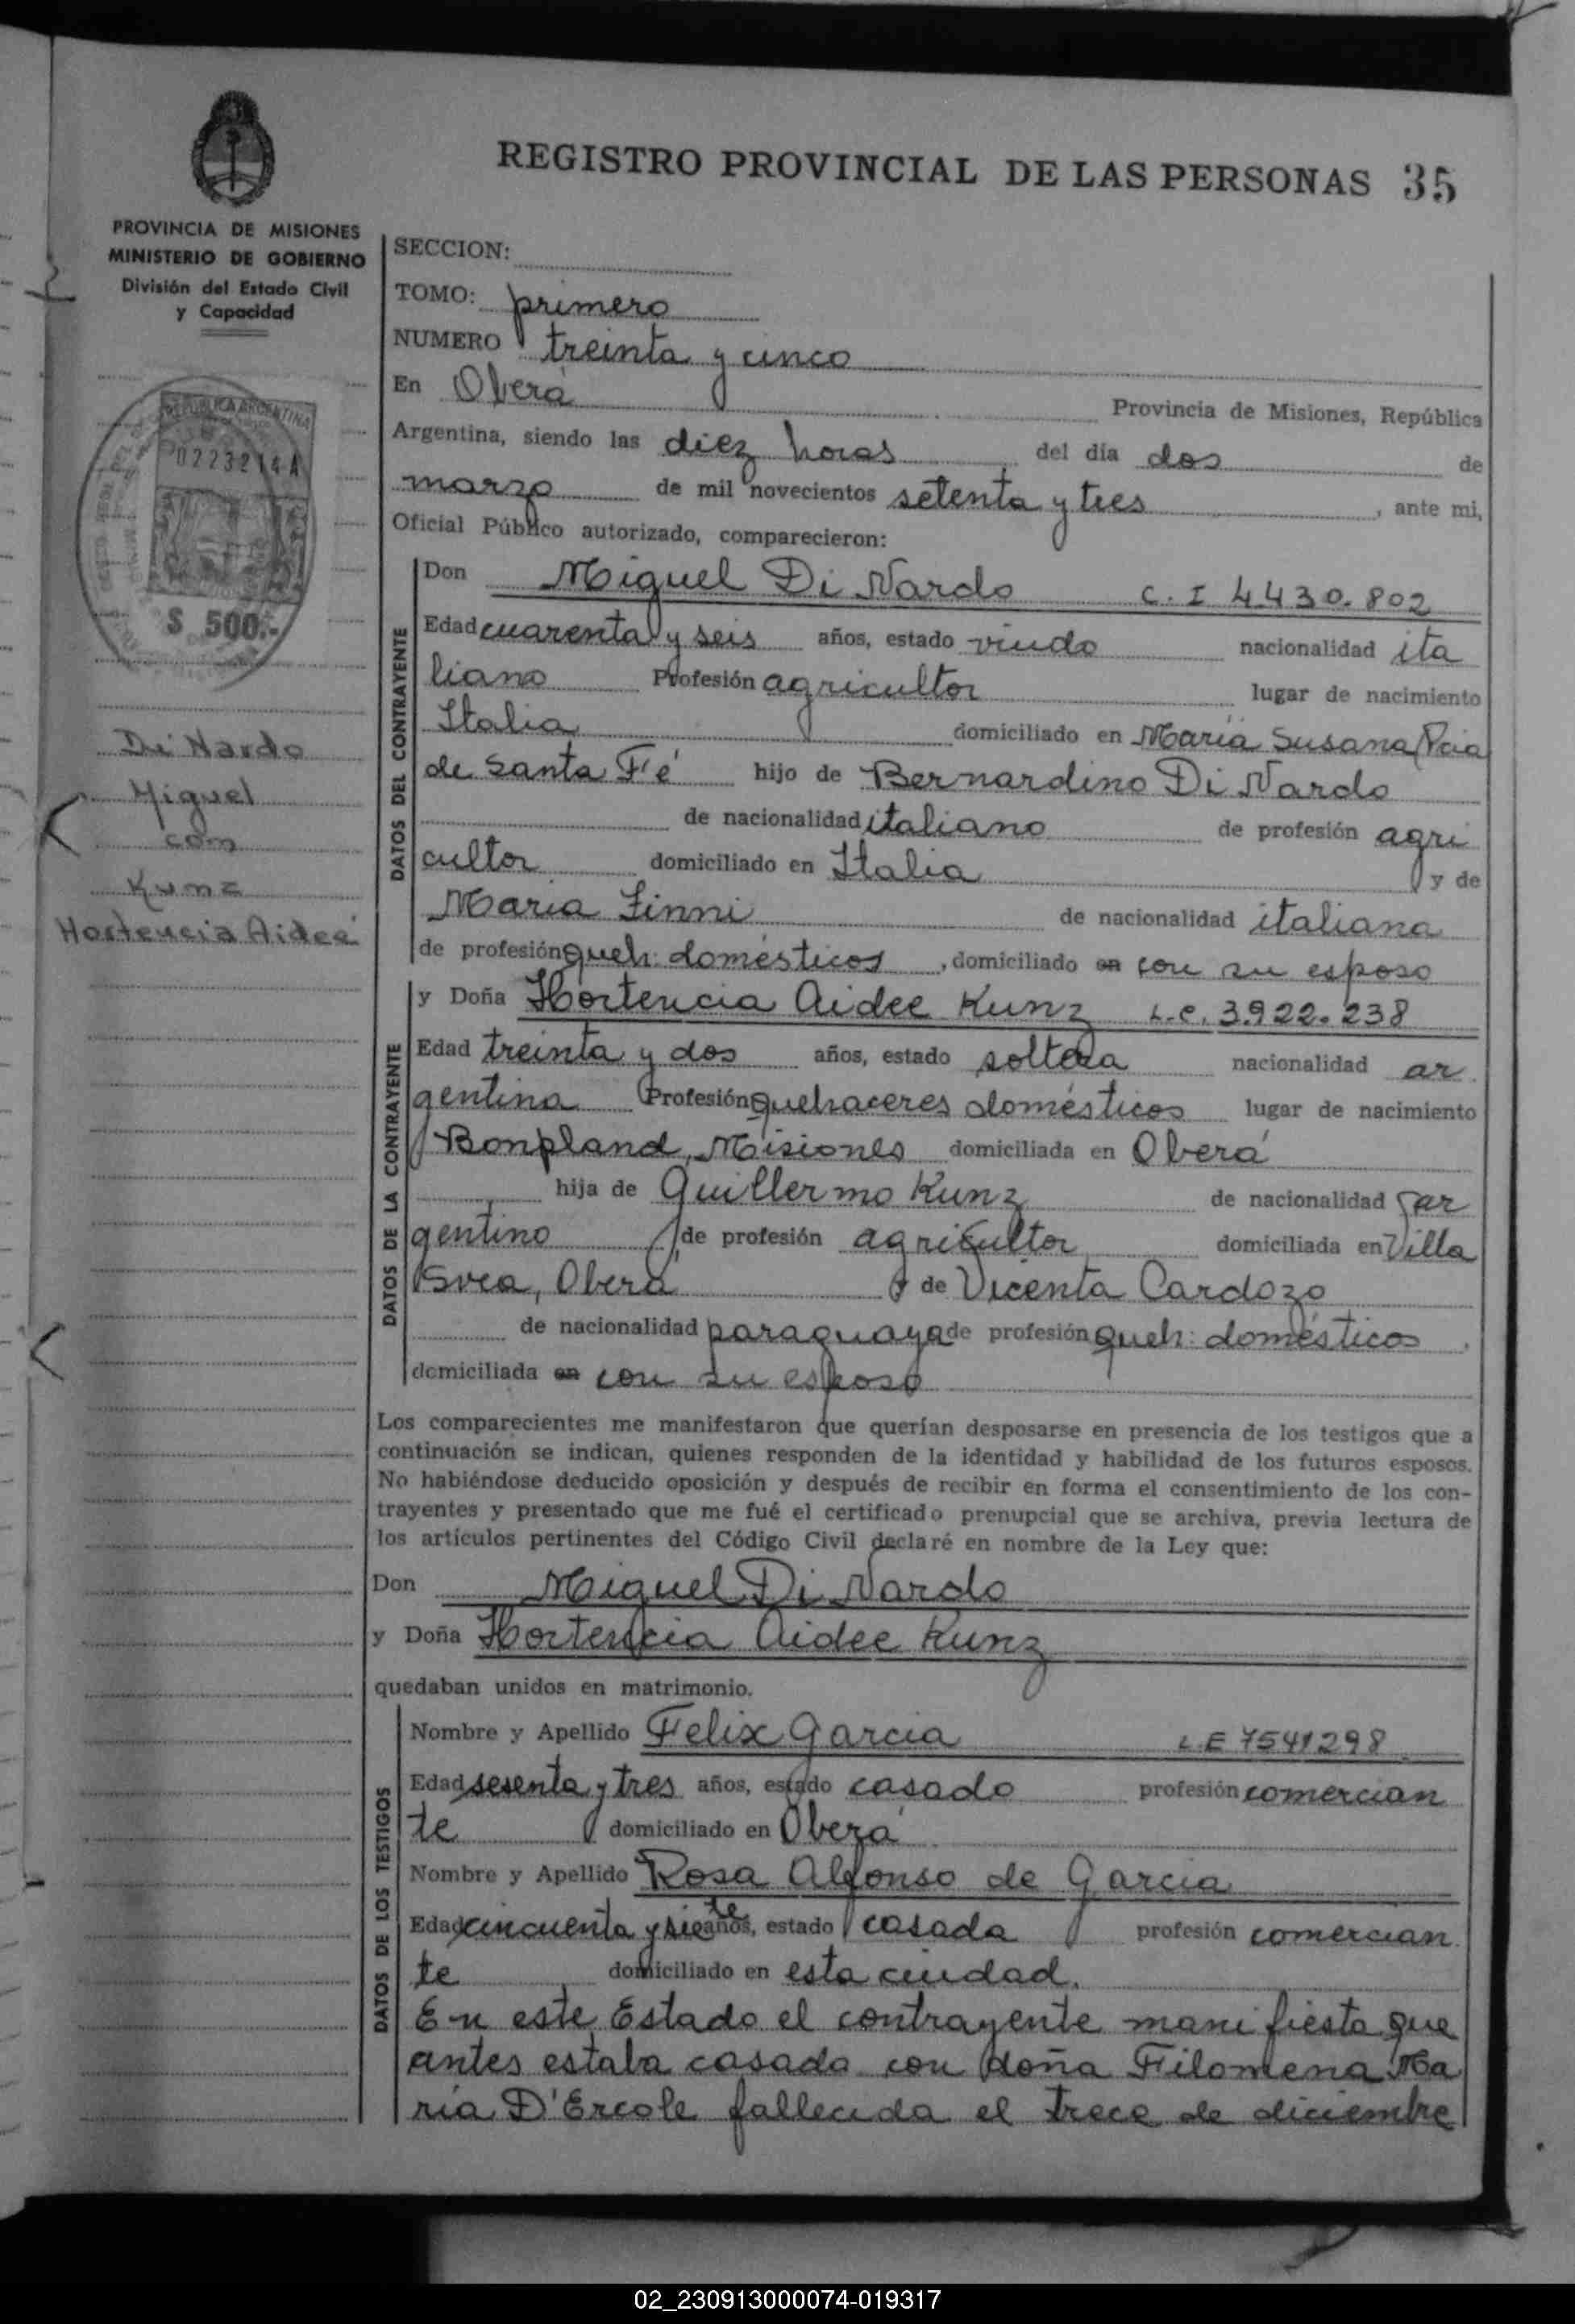 REGISTRO PROVINCIAL DE LAS PERSONAS 35
PROVINCIA DE MISIONES
MINISTERIO DE GOBIERNO
División del Estado Civil
y Capacidad
REPUBLICA ARGENTINA
0223214 A
$ 500.-
Di Nardo
Miguel
con
Kunz
Hortencia Aideé
SECCION:
TOMO: primero
NUMERO treinta y cinco
En Oberá Provincia de Misiones, República
Argentina, siendo las diez horas del día dos de
marzo de mil novecientos setenta y tres, ante mi,
Oficial Público autorizado, comparecieron:
DATOS DEL CONTRAYENTE
Don Miguel Di Nardo C. I 4.430.802
Edad cuarenta y seis años, estado viudo nacionalidad ita
liano Profesión agricultor lugar de nacimiento
Italia domiciliado en María Susana (Pcia
de Santa Fé hijo de Bernardino Di Nardo
de nacionalidad italiano de profesión agri
cultor domiciliado en Italia y de
María Finni de nacionalidad italiana
de profesión queh: domésticos, domiciliado en con su esposo
DATOS DE LA CONTRAYENTE
y Doña Hortencia Aidee Kunz L.C. 3.922.238
Edad treinta y dos años, estado soltera nacionalidad ar
gentina Profesión quehaceres domésticos lugar de nacimiento
Bonpland, Misiones domiciliada en Oberá
hija de Guillermo Kunz de nacionalidad ar
gentino de profesión agricultor domiciliada en Villa
Svea, Oberá y de Vicenta Cardozo
de nacionalidad paraguaya de profesión queh: domésticos
domiciliada en con su esposo
Los comparecientes me manifestaron que querían desposarse en presencia de los testigos que a
continuación se indican, quienes responden de la identidad y habilidad de los futuros esposos.
No habiéndose deducido oposición y después de recibir en forma el consentimiento de los con-
trayentes y presentado que me fué el certificado prenupcial que se archiva, previa lectura de
los artículos pertinentes del Código Civil declaré en nombre de la Ley que:
Don Miguel Di Nardo
y Doña Hortencia Aidee Kunz
quedaban unidos en matrimonio.
DATOS DE LOS TESTIGOS
Nombre y Apellido Felix Garcia L.E 7541298
Edad sesenta y tres años, estado casado profesión comercian
te domiciliado en Oberá
Nombre y Apellido Rosa Alfonso de Garcia
Edad cincuenta y siete años, estado casada profesión comercian
te domiciliado en esta ciudad.
En este Estado el contrayente manifiesta que
antes estaba casado con doña Filomena Ma
ría D'Ercole fallecida el trece de diciembre
02_230913000074-019317